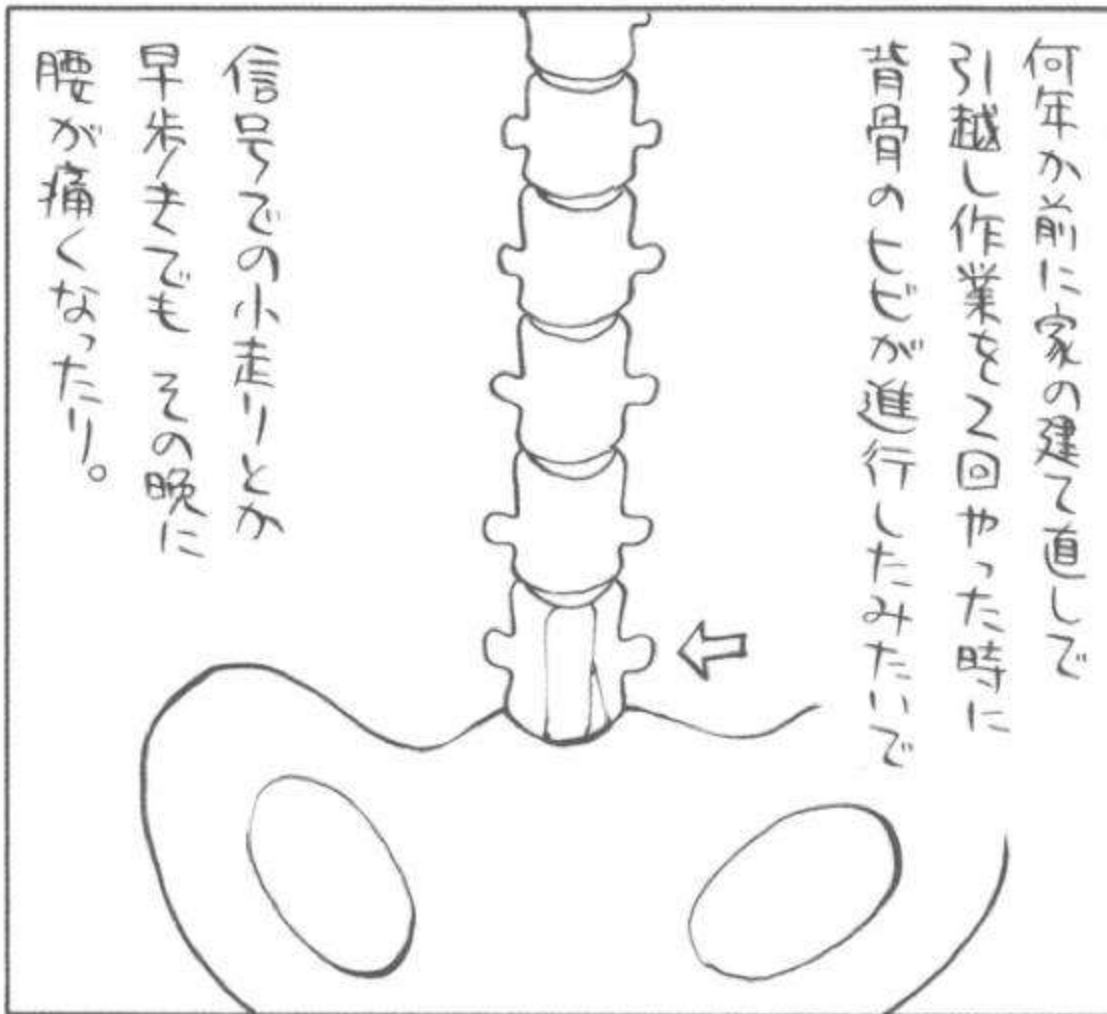 何年か前に家の建て直しで
引越し作業を2回やった時に
背骨のヒビが進行したみたいで
信号での小走りとか
早歩きでも その晩に
腰が痛くなったり。